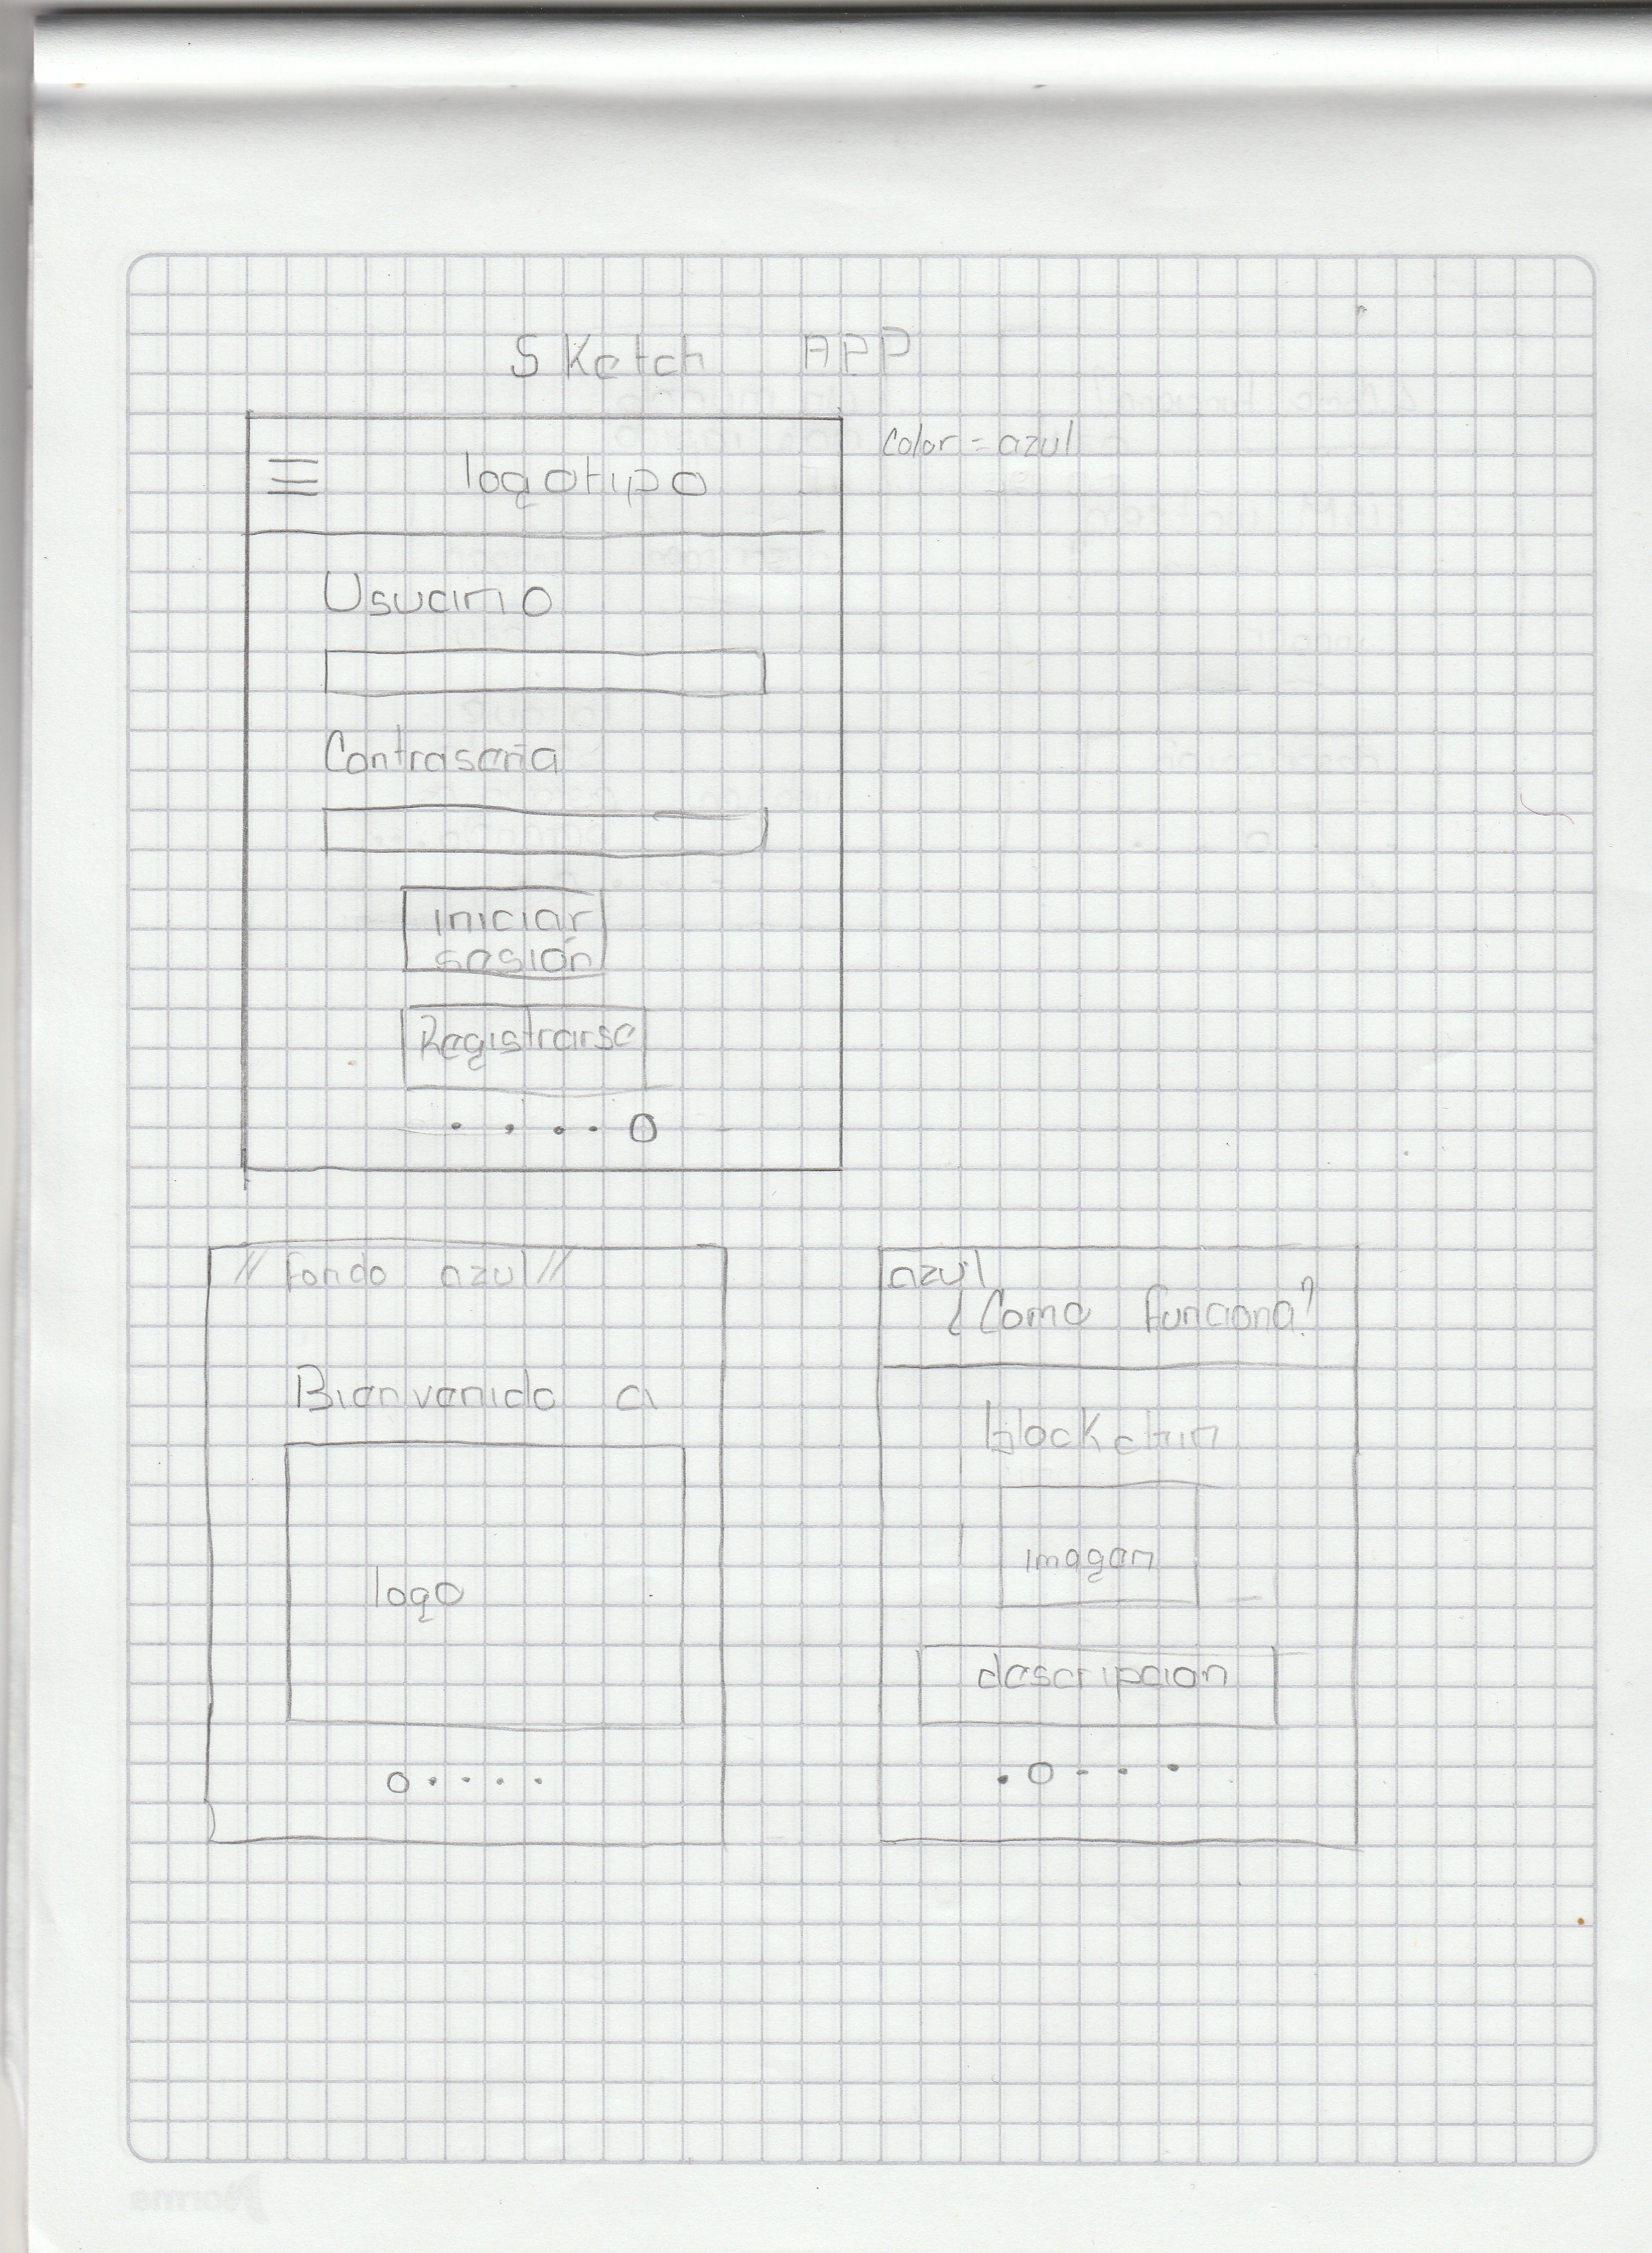 Sketch APP
color = azul
logotipo
Usuario
Contraseña
iniciar
sesión
Registrarse
// fondo azul //
Bienvenido a
logo
azul
¿Como funciona?
blockchin
imagen
descripcion
Norma